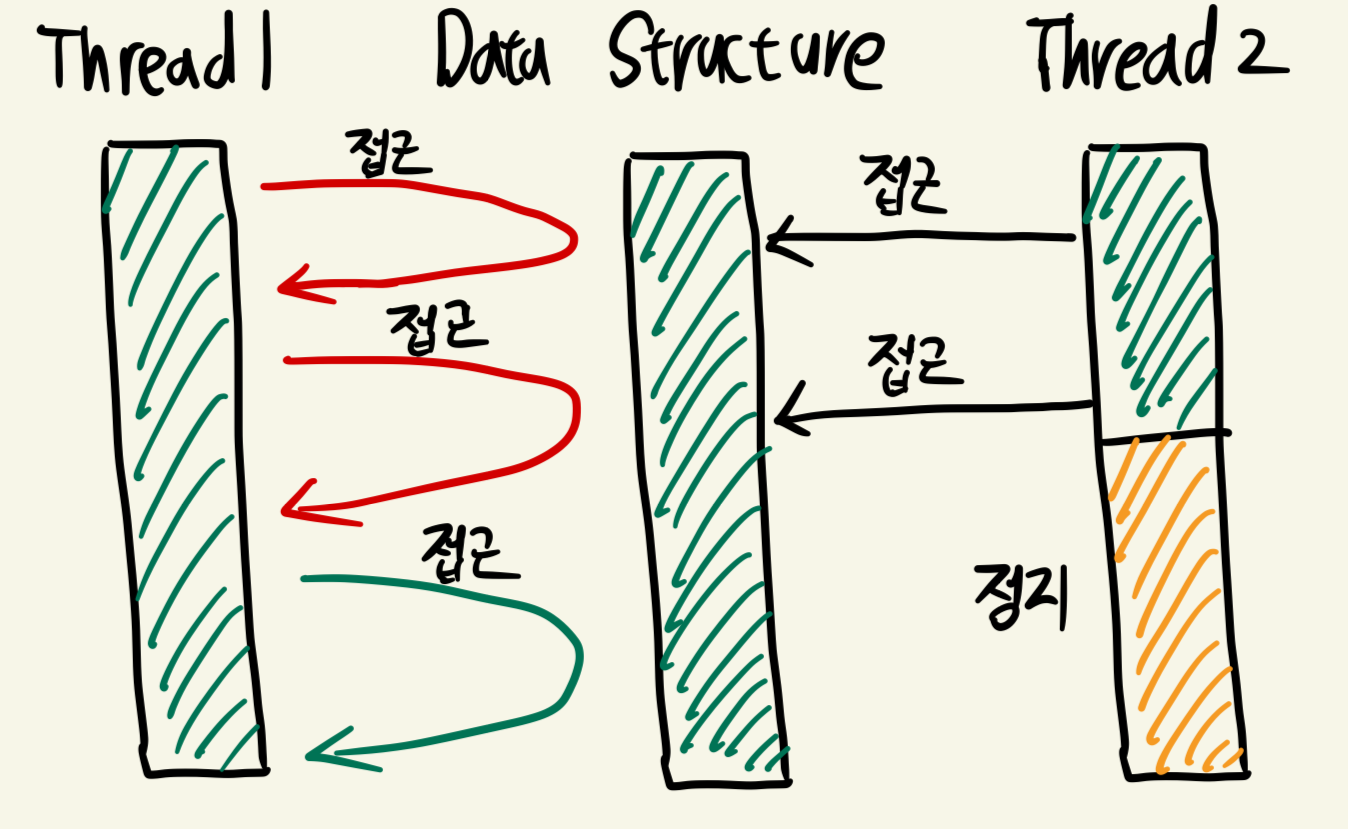 Thread 1 Data Structure Thread 2
접근
접근
접근
접근
접근
정지